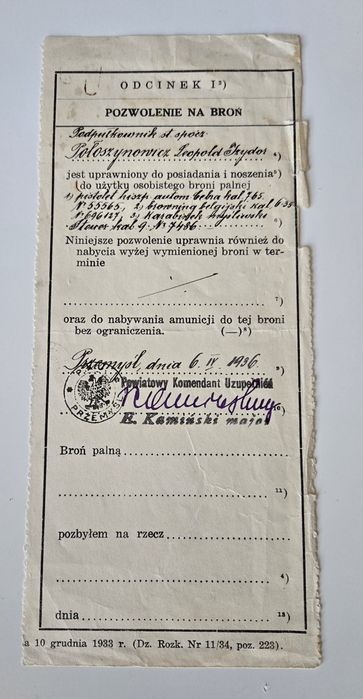 ODCINEK I²)
POZWOLENIE NA BROŃ
Podpułkownik st. spocz.
Połoszynowicz Leopold Izydor ⁴)
jest uprawniony do posiadania i noszenia⁵)
(do użytku osobistego broni palnej
1) pistolet hiszp. autom. Ceha kal. 7.65
Nº 55565, 2) browning belgijski kal. 6.35
Nº 696127, 3) Karabinek myśliwski
kal. 9. Nº 7486. ⁶)
Niniejsze pozwolenie uprawnia również do
nabycia wyżej wymienionej broni w ter-
minie
⁷)
oraz do nabywania amunicji do tej broni
bez ograniczenia. (—)⁸)
Przemyśl, dnia 6. IV 1936 ⁹)
Powiatowy Komendant Uzupełnień
PRZEMYŚL
E. Kamiński major
Broń palną
¹¹)
pozbyłem na rzecz
⁴)
dnia ¹³)
a 10 grudnia 1933 r. (Dz. Rozk. Nr 11/34, poz. 223).